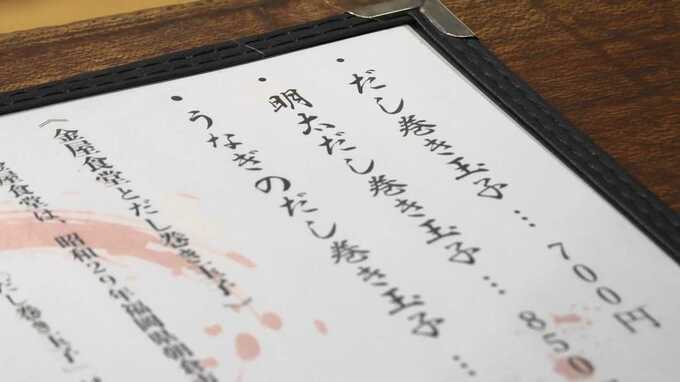 ・だし巻き玉子…700円
・明太だし巻き玉子…850
・うなぎのだし巻き玉子…
《金屋食堂とだし巻き玉子》
屋食堂は、昭和29年福岡県朝倉
だし巻き玉子」